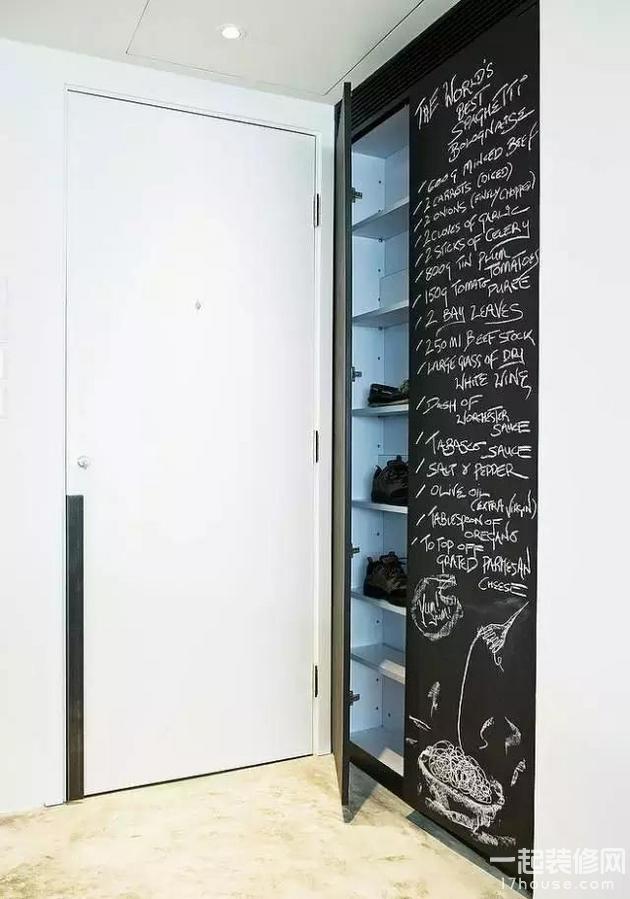 THE WORLD'S
BEST
SPAGHETTI
BOLOGNAISE
/ 600g MINCED BEEF
/ 2 CARROTS (DICED)
/ 2 ONIONS (FINELY CHOPPED)
/ 2 CLOVES OF GARLIC
/ 2 STICKS OF CELERY
/ 800g TIN PLUM
TOMATOES
/ 150g TOMATO PUREE
/ 2 BAY LEAVES
/ 250 Ml BEEF STOCK
/ LARGE GLASS OF DRY
WHITE WINE
/ DASH OF
WORCHESTER
SAUCE
/ TABASCO SAUCE
/ SALT & PEPPER
/ OLIVE OIL
(EXTRA VERGIN)
/ TABLESPOON OF
OREGANO
/ TO TOP OFF
GRATED PARMESAN
CHEESE
Yum!
Yum!
一起装修网
17house.com